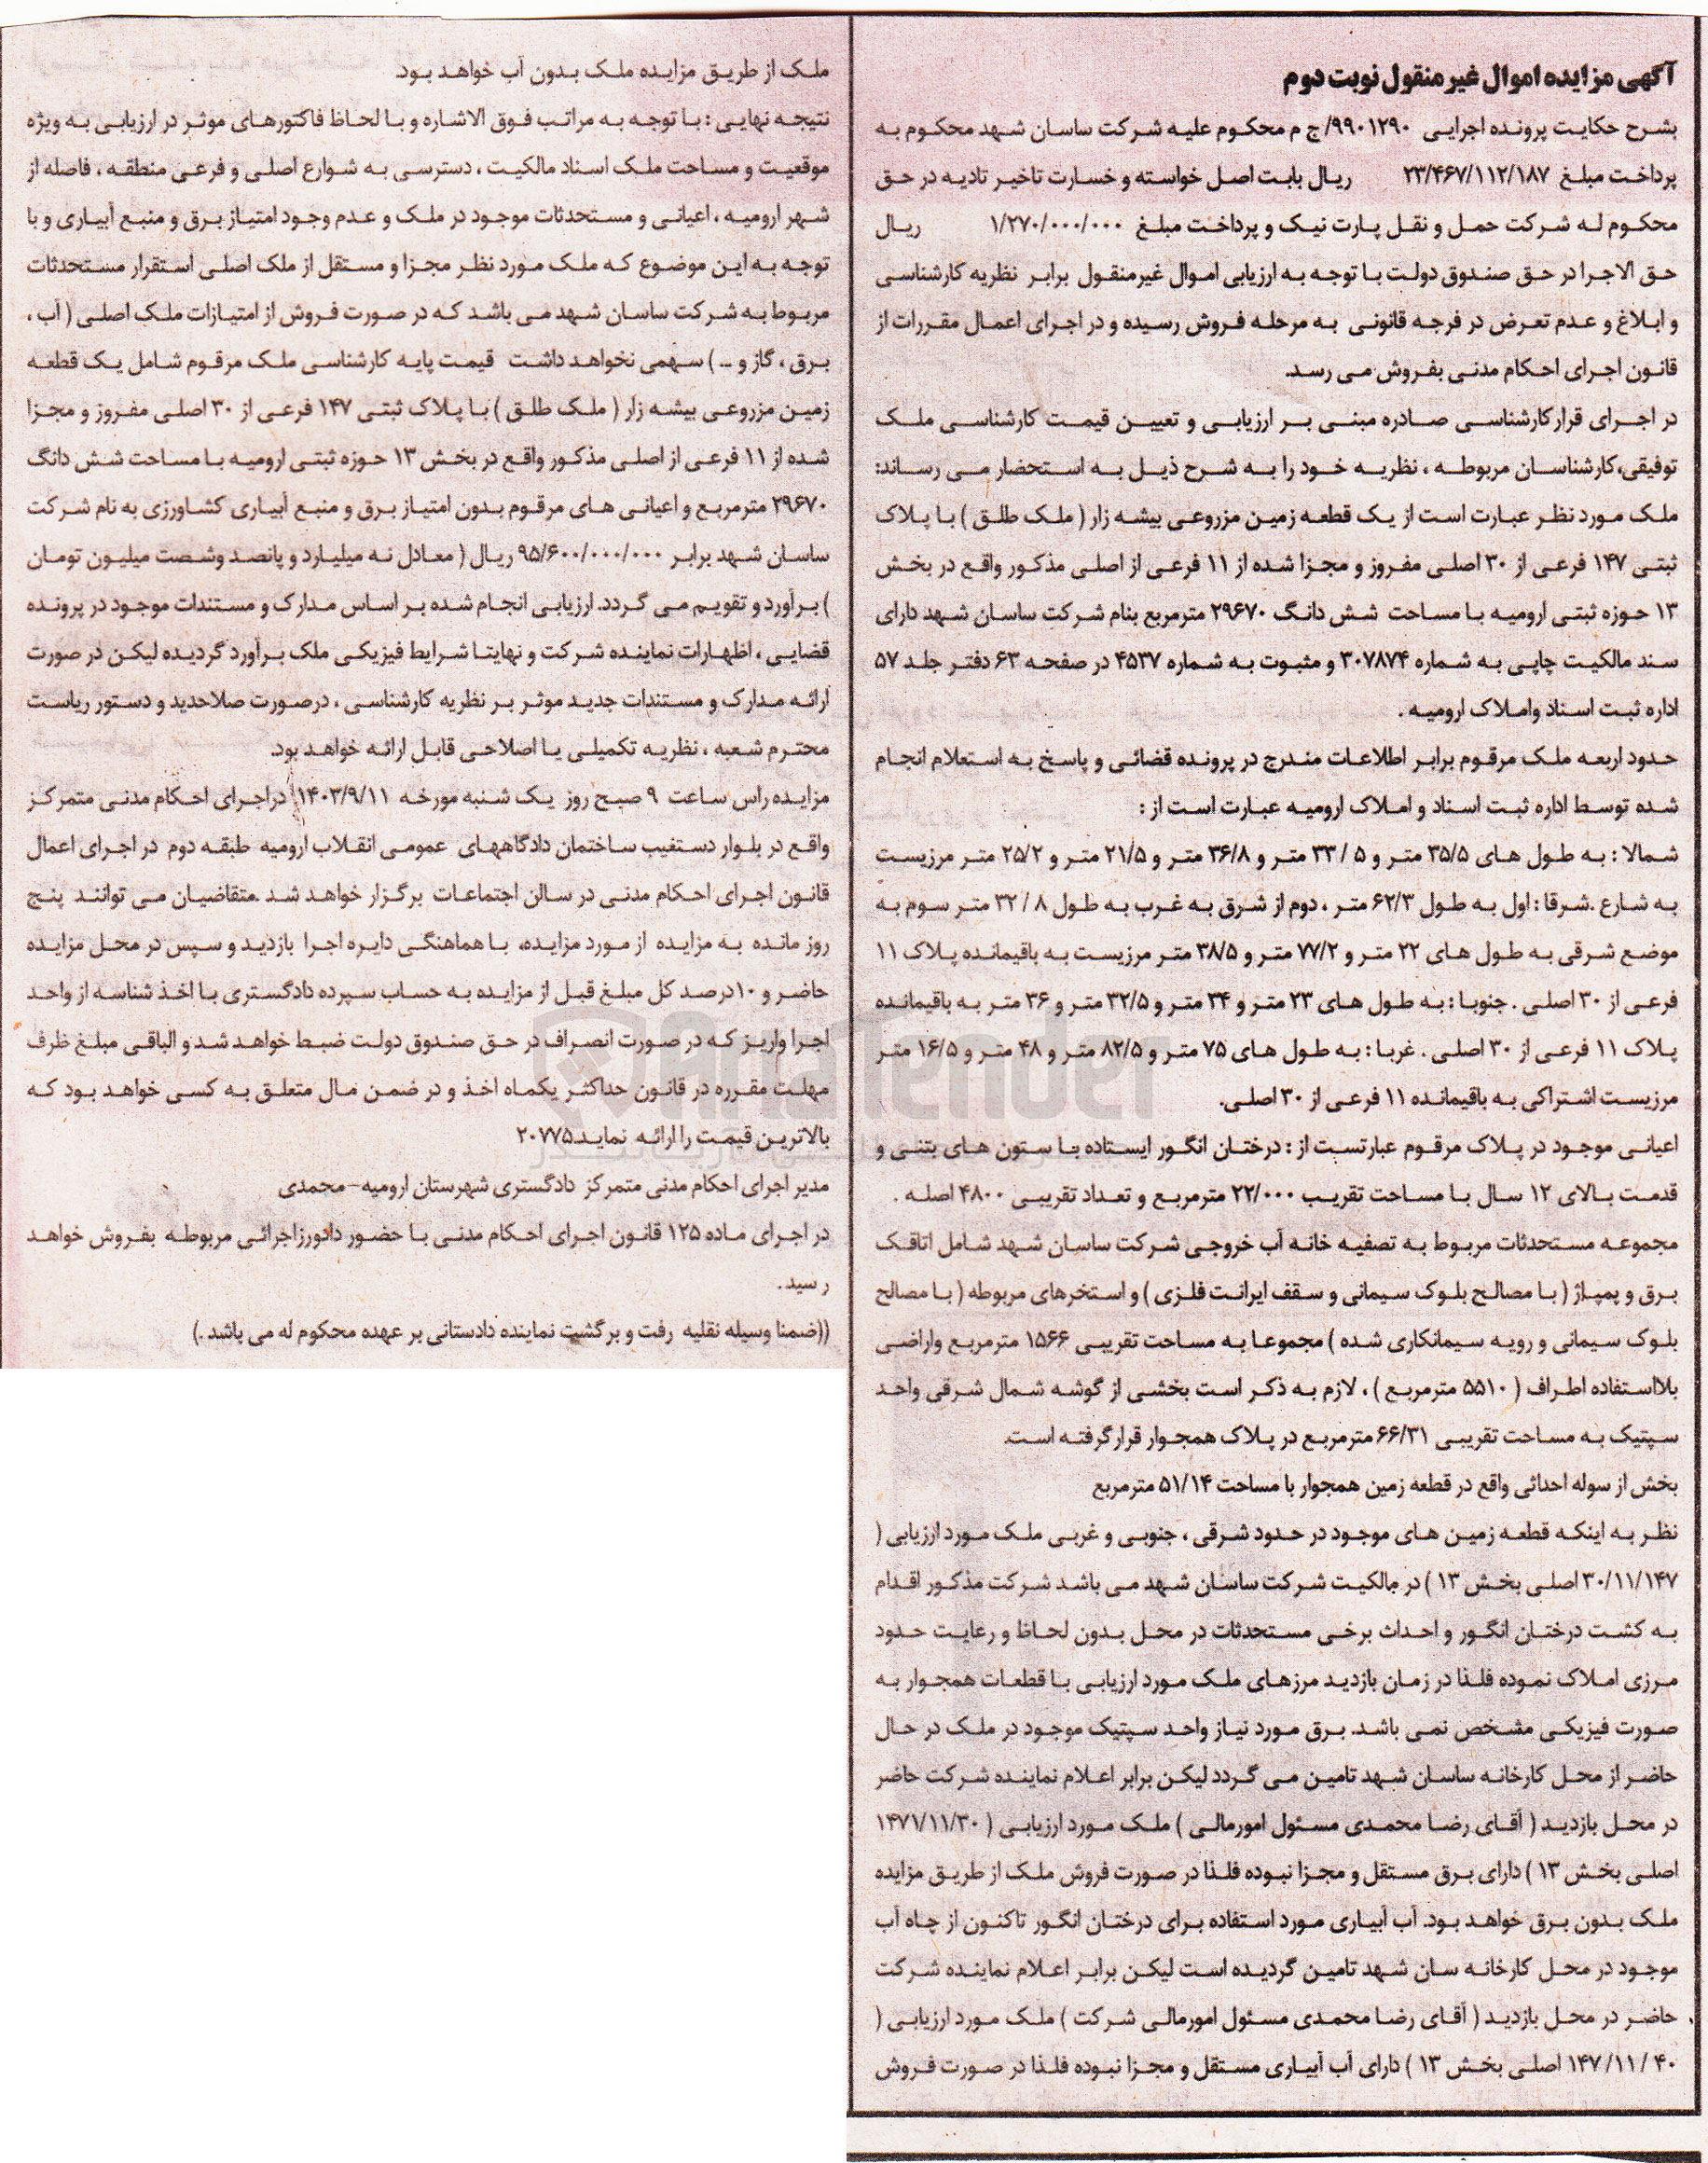 آگهی مزایده اموال غیر منقول نوبت دوم
بشرح حکایت پرونده اجرایی ۹۹۰۱۲۹۰/ج م محکوم علیه شرکت ساسان شهد محکوم به
پرداخت مبلغ ۲۳/۴۶۷/۱۱۲/۱۸۷ ریال بابت اصل خواسته و خسارت تاخیر تادیه در حق
محکوم له شرکت حمل و نقل پارت نیک و پرداخت مبلغ ۱/۲۷۰/۰۰۰/۰۰۰ ریال
حق الاجرا در حق صندوق دولت با توجه به ارزیابی اموال غیرمنقول برابر نظریه کارشناسی
و ابلاغ و عدم تعرض در فرجه قانونی به مرحله فروش رسیده و در اجرای اعمال مقررات از
قانون اجرای احکام مدنی بفروش می رسد.
در اجرای قرارکارشناسی صادره مبنی بر ارزیابی و تعیین قیمت کارشناسی ملک
توقیفی،کارشناسان مربوطه ، نظریه خود را به شرح ذیل به استحضار می رساند:
ملک مورد نظر عبارت است از یک قطعه زمین مزروعی بیشه زار ( ملک طلق ) با پلاک
ثبتی ۱۴۷ فرعی از ۳۰ اصلی مفروز و مجزا شده از ۱۱ فرعی از اصلی مذکور واقع در بخش
۱۳ حوزه ثبتی ارومیه با مساحت شش دانگ ۲۹۶۷۰ مترمربع بنام شرکت ساسان شهد دارای
سند مالکیت چاپی به شماره ۳۰۷۸۷۴ و مثبوت به شماره ۴۵۳۷ در صفحه ۶۳ دفتر جلد ۵۷
اداره ثبت اسناد واملاک ارومیه .
حدود اربعه ملک مرقوم برابر اطلاعات مندرج در پرونده قضائی و پاسخ به استعلام انجام
شده توسط اداره ثبت اسناد و املاک ارومیه عبارت است از :
شمالا : به طول های ۳۵/۵ متر و ۵ / ۳۳ متر و ۳۶/۸ متر و ۲۱/۵ متر و ۲۵/۲ متر مرزیست
به شارع .شرقا : اول به طول ۶۲/۳ متر ، دوم از شرق به غرب به طول ۸ / ۳۲ متر سوم به
موضع شرقی به طول های ۲۲ متر و ۷۷/۲ متر و ۳۸/۵ متر مرزیست به باقیمانده پلاک ۱۱
فرعی از ۳۰ اصلی . جنوبا : به طول های ۲۳ متر و ۳۴ متر و ۳۲/۵ متر و ۳۶ متر به باقیمانده
پلاک ۱۱ فرعی از ۳۰ اصلی . غربا : به طول های ۷۵ متر و ۸۲/۵ متر و ۴۸ متر و ۱۶/۵ متر
مرزیست اشتراکی به باقیمانده ۱۱ فرعی از ۳۰ اصلی.
اعیانی موجود در پلاک مرقوم عبارتست از : درختان انگور ایستاده با ستون های بتنی و
قدمت بالای ۱۲ سال با مساحت تقریب ۲۲/۰۰۰ مترمربع و تعداد تقریبی ۴۸۰۰ اصله .
مجموعه مستحدثات مربوط به تصفیه خانه آب خروجی شرکت ساسان شهد شامل اتاقک
برق و پمپاژ ( با مصالح بلوک سیمانی و سقف ایرانت فلزی ) و استخرهای مربوطه ( با مصالح
بلوک سیمانی و رویه سیمانکاری شده ) مجموعا به مساحت تقریبی ۱۵۶۶ مترمربع واراضی
بلااستفاده اطراف ( ۵۵۱۰ مترمربع ) ، لازم به ذکر است بخشی از گوشه شمال شرقی واحد
سپتیک به مساحت تقریبی ۶۶/۳۱ مترمربع در پلاک همجوار قرار گرفته است.
بخش از سوله احداثی واقع در قطعه زمین همجوار با مساحت ۵۱/۱۴ مترمربع
نظر به اینکه قطعه زمین های موجود در حدود شرقی ، جنوبی و غربی ملک مورد ارزیابی (
۳۰/۱۱/۱۴۷ اصلی بخش ۱۳ ) در مالکیت شرکت ساسان شهد می باشد شرکت مذکور اقدام
به کشت درختان انگور و احداث برخی مستحدثات در محل بدون لحاظ و رعایت حدود
مرزی املاک نموده فلذا در زمان بازدید مرزهای ملک مورد ارزیابی با قطعات همجوار به
صورت فیزیکی مشخص نمی باشد. برق مورد نیاز واحد سپتیک موجود در ملک در حال
حاضر از محل کارخانه ساسان شهد تامین می گردد لیکن برابر اعلام نماینده شرکت حاضر
در محل بازدید ( آقای رضا محمدی مسئول امورمالی ) ملک مورد ارزیابی ( ۱۴۷۱/۱۱/۳۰
اصلی بخش ۱۳ ) دارای برق مستقل و مجزا نبوده فلذا در صورت فروش ملک از طریق مزایده
ملک بدون برق خواهد بود. آب آبیاری مورد استفاده برای درختان انگور تاکنون از چاه آب
موجود در محل کارخانه سان شهد تامین گردیده است لیکن برابر اعلام نماینده شرکت
حاضر در محل بازدید ( آقای رضا محمدی مسئول امورمالی شرکت ) ملک مورد ارزیابی (
۴۰ / ۱۴۷/۱۱ اصلی بخش ۱۳ ) دارای آب آبیاری مستقل و مجزا نبوده فلذا در صورت فروش
ملک از طریق مزایده ملک بدون آب خواهد بود.
نتیجه نهایی : با توجه به مراتب فوق الاشاره و با لحاظ فاکتورهای موثر در ارزیابی به ویژه
موقعیت و مساحت ملک اسناد مالکیت ، دسترسی به شوارع اصلی و فرعی منطقه ، فاصله از
شهر ارومیه ، اعیانی و مستحدثات موجود در ملک و عدم وجود امتیاز برق و منبع آبیاری و با
توجه به این موضوع که ملک مورد نظر مجزا و مستقل از ملک اصلی استقرار مستحدثات
مربوط به شرکت ساسان شهد می باشد که در صورت فروش از امتیازات ملک اصلی ( آب ،
برق ، گاز و ... ) سهمی نخواهد داشت قیمت پایه کارشناسی ملک مرقوم شامل یک قطعه
زمین مزروعی بیشه زار ( ملک طلق ) با پلاک ثبتی ۱۴۷ فرعی از ۳۰ اصلی مفروز و مجزا
شده از ۱۱ فرعی از اصلی مذکور واقع در بخش ۱۳ حوزه ثبتی ارومیه با مساحت شش دانگ
۲۹۶۷۰ مترمربع و اعیانی های مرقوم بدون امتیاز برق و منبع آبیاری کشاورزی به نام شرکت
ساسان شهد برابر ۹۵/۶۰۰/۰۰۰/۰۰۰ ریال ( معادل نه میلیارد و پانصد وشصت میلیون تومان
) برآورد و تقویم می گردد. ارزیابی انجام شده بر اساس مدارک و مستندات موجود در پرونده
قضایی ، اظهارات نماینده شرکت و نهایتا شرایط فیزیکی ملک برآورد گردیده لیکن در صورت
ارائه مدارک و مستندات جدید موثر بر نظریه کارشناسی ، درصورت صلاحدید و دستور ریاست
محترم شعبه ، نظریه تکمیلی یا اصلاحی قابل ارائه خواهد بود.
مزایده راس ساعت ۹ صبح روز یک شنبه مورخه ۱۴۰۳/۹/۱۱ دراجرای احکام مدنی متمرکز
واقع در بلوار دستغیب ساختمان دادگاههای عمومی انقلاب ارومیه طبقه دوم در اجرای اعمال
قانون اجرای احکام مدنی در سالن اجتماعات برگزار خواهد شد .متقاضیان می توانند پنج
روز مانده به مزایده از مورد مزایده، با هماهنگی دایره اجرا بازدید و سپس در محل مزایده
حاضر و ۱۰درصد کل مبلغ قبل از مزایده به حساب سپرده دادگستری با اخذ شناسه از واحد
اجرا واریز که در صورت انصراف در حق صندوق دولت ضبط خواهد شد و الباقی مبلغ ظرف
مهلت مقرره در قانون حداکثر یکماه اخذ و در ضمن مال متعلق به کسی خواهد بود که
بالاترین قیمت را ارائه نماید.۲۰۷۷۵
مدیر اجرای احکام مدنی متمرکز دادگستری شهرستان ارومیه-محمدی
در اجرای ماده ۱۲۵ قانون اجرای احکام مدنی با حضور دادورزاجرائی مربوطه بفروش خواهد
رسید .
((ضمنا وسیله نقلیه رفت و برگشت نماینده دادستانی بر عهده محکوم له می باشد .)
AriaTender